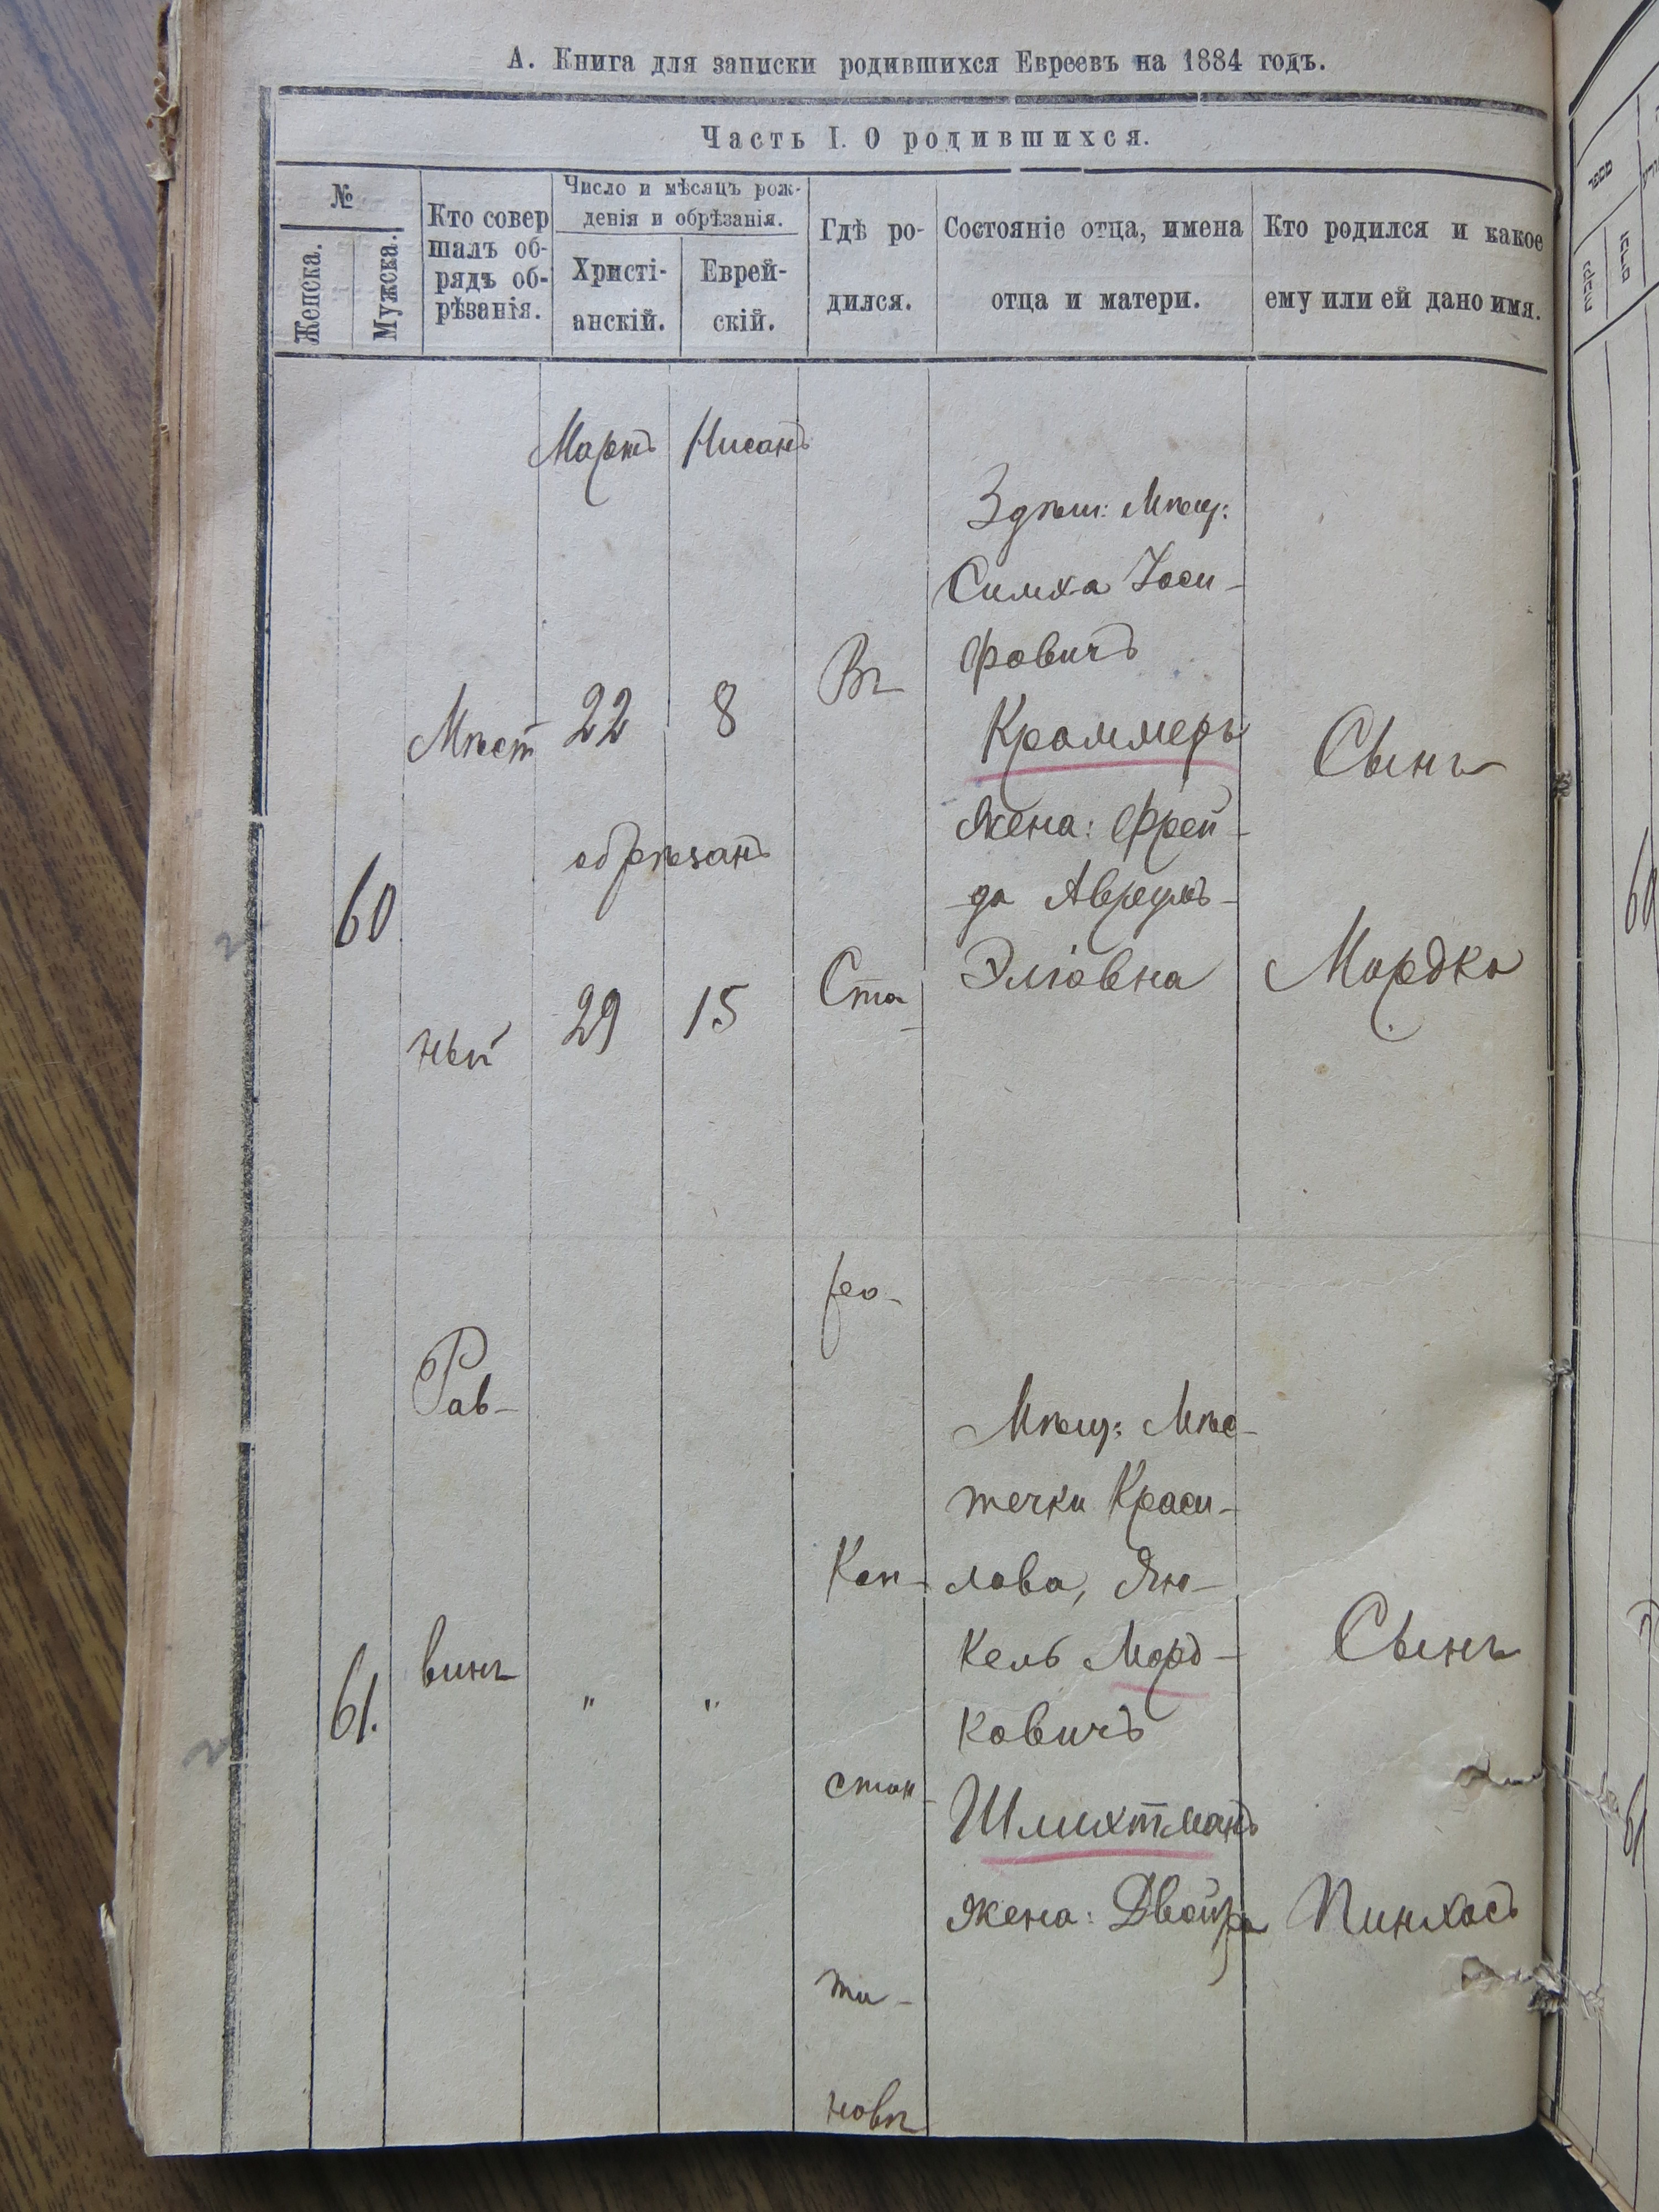 А. Книга для записки родившихся Евреевъ на 1884 годъ.
Часть I. О родившихся.
№
Женска.
Мужска.
Кто совер
шалъ об-
рядъ об-
рѣзанія.
Число и мѣсяцъ рож-
денія и обрѣзанія.
Христі-
анскій.
Еврей-
скій.
Гдѣ ро-
дился.
Состояніе отца, имена
отца и матери.
Кто родился и какое
ему или ей дано имя.
Мартъ Нисанъ
60
Мѣст
ный
22 8
обрѣзанъ
29 15
Въ
Ста
Здѣш: Мѣщ:
Симха Іоси-
фовичъ
Краммеръ
жена: Фрей-
да Аврумъ-
Эліовна
Сынъ
Мордко
61.
Рав-
винъ
" "
Кон-
стан-
ти-
новѣ
Мѣщ: Мѣс-
течки Краси-
лова,Ян-
кель Морд-
ковичъ
Шлихтманъ
жена: Двойра
Сынъ
Пинхасъ
מספר